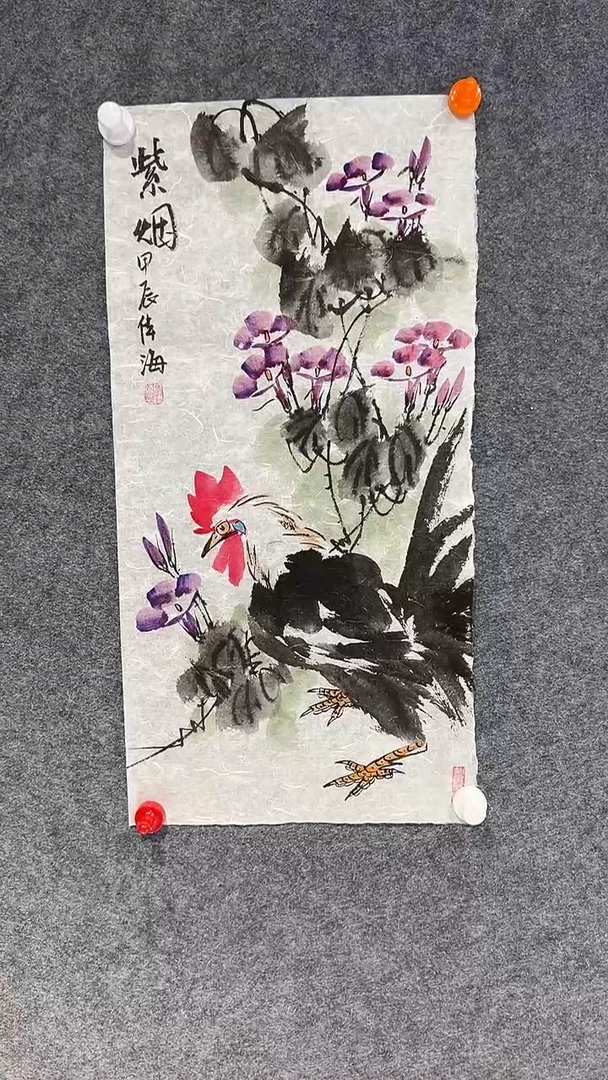 紫烟甲辰伟海